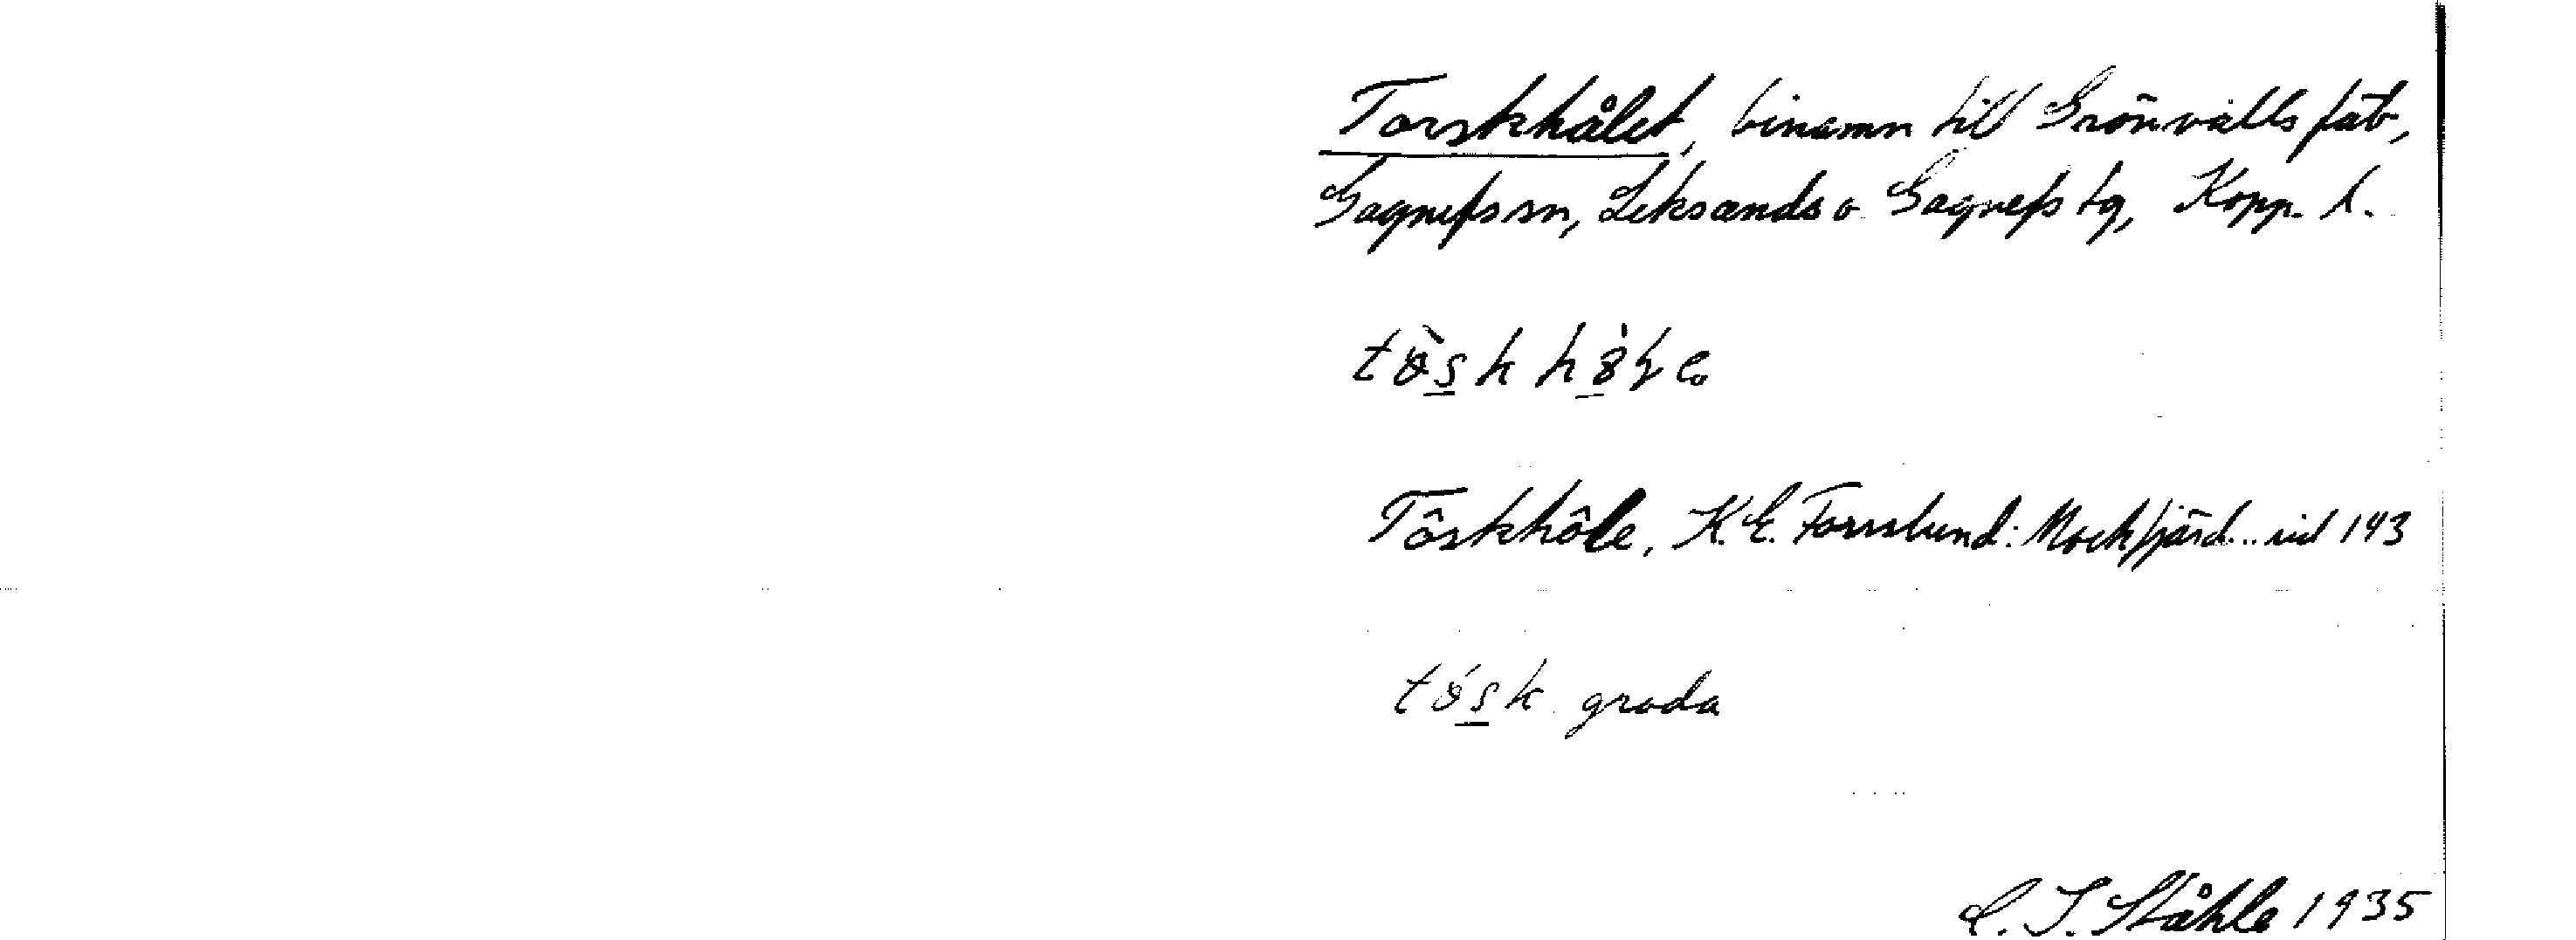 Torskhålet, binamn till Grönvalls fäb,
Gagnefs sn, Leksands o Gagnefs tg, Kopp. l.
Tôskhôle, K. E. Forsslund: Mockfjärd... sid 143
groda
C. I. Ståhle 1935